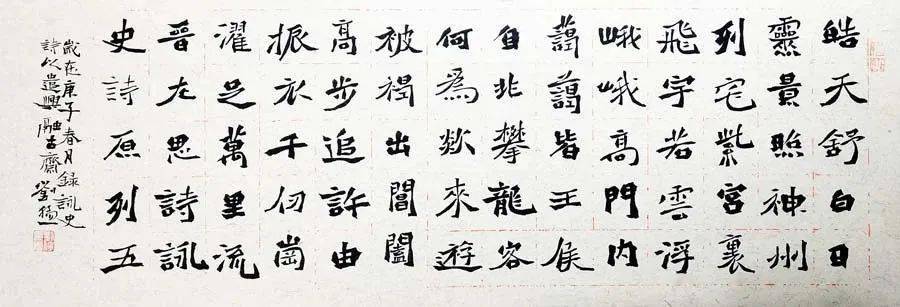 皓天舒白日
靈景照神州
列宅紫宮裏
飛宇若雲浮
峨峨高門內
藹藹皆王侯
自非攀龍客
何為欻來遊
被褐出閶闔
高步追許由
振衣千仞崗
濯足萬里流
晉左思詩詠
史詩原列五
歲在庚子春月錄詠史
詩以遣興融古齋劉